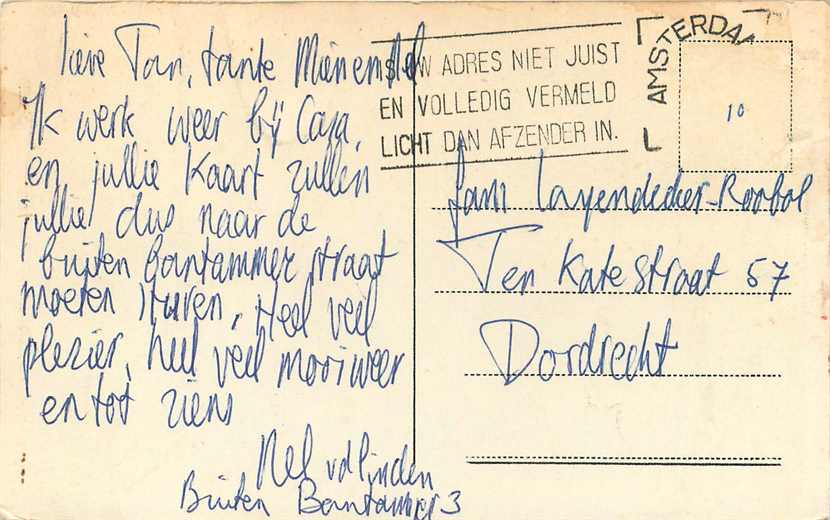 lieve Ton, tante Mien en
Ik werk weer bij Casa,
en jullie kaart zullen
jullie dus naar de
buiten bantammer straat
moeten sturen. Heel veel
plezier, heel veel mooi weer
en tot ziens
Nel vd linden
Buiten Bantammer 3
UW ADRES NIET JUIST
EN VOLLEDIG VERMELD
LICHT DAN AFZENDER IN.
AMSTERDAM
10
fam Layendecker-Roobol
Ten Kate Straat 57
Dordrecht